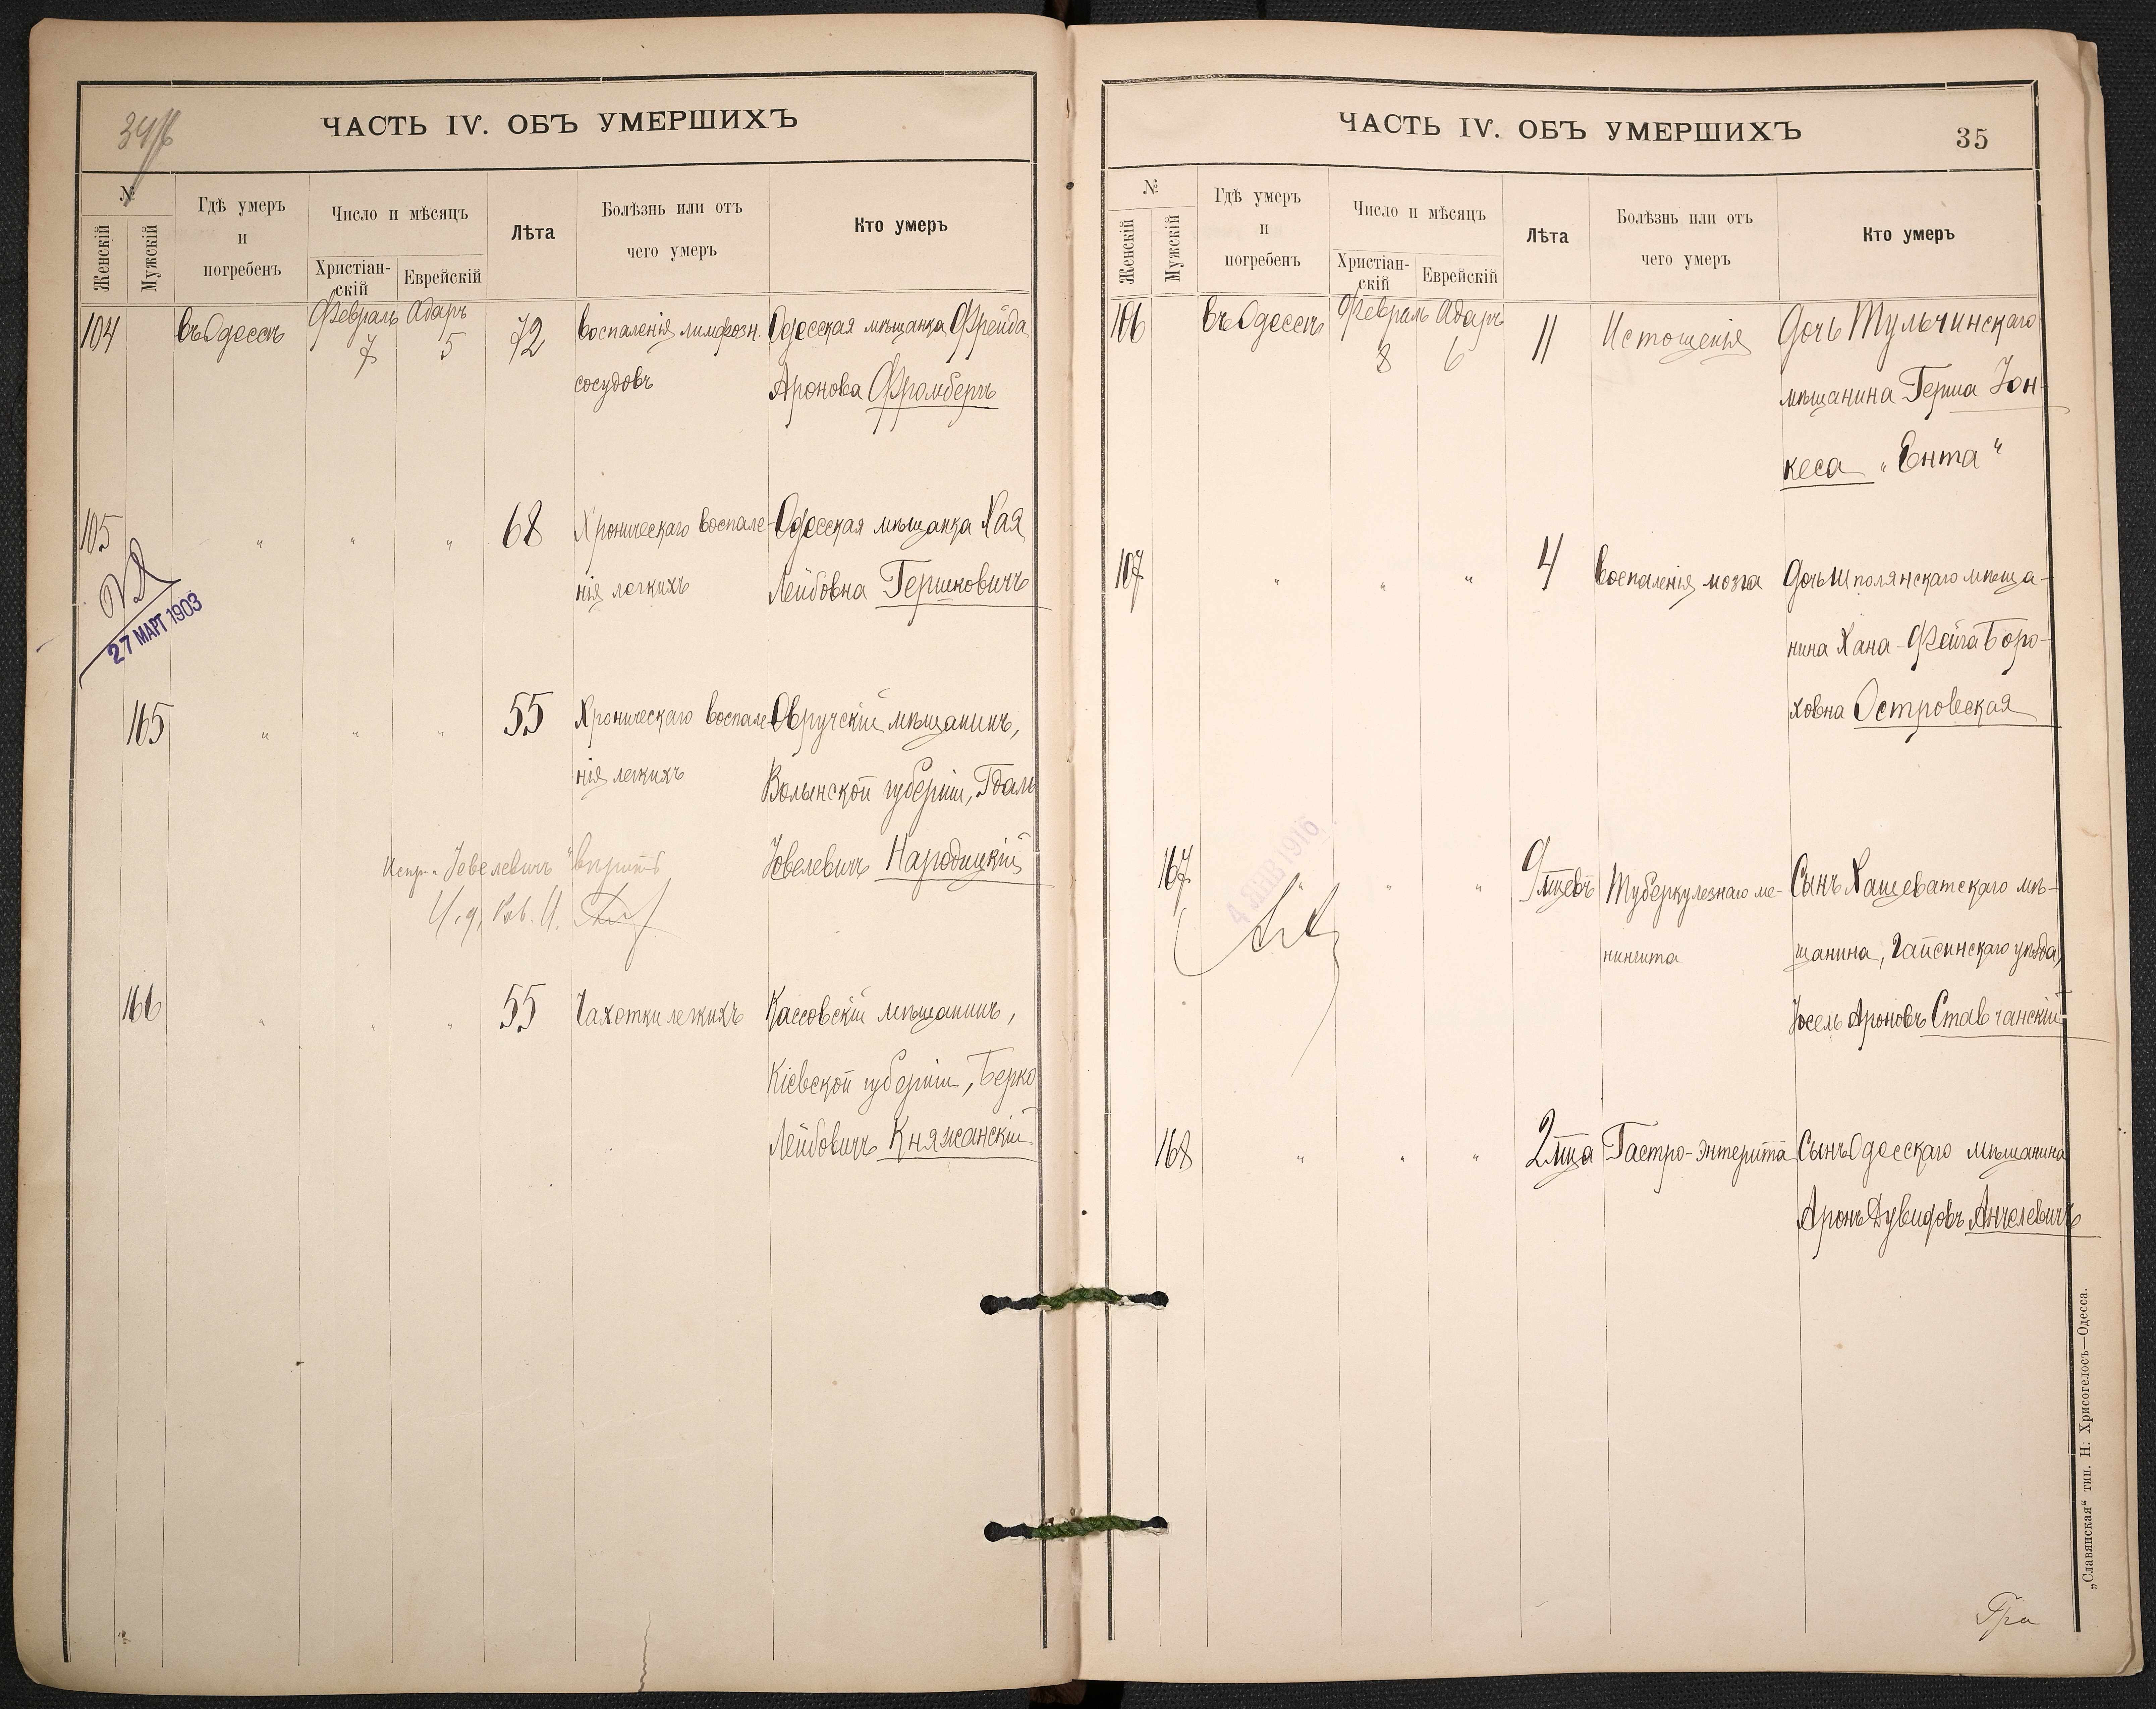 ЧАСТЬ IV. ОБЪ УМЕРШИХЪ
№
Женскій
Мужскій
Гдѣ умеръ
и
погребенъ
Число и мѣсяцъ
Христіан-
скій
Еврейскій
Лѣта
Болѣзнь или отъ
чего умеръ
Кто умеръ
104 въ Одессѣ Февраль Адаръ 72 Воспаленія лимфозн. Одесская мѣщанка Фрейда
7 5 сосудовъ Аронова Фромбергъ
105 " " " 68 Хроническаго воспале- Одесская мѣщанка Хая
нія легкихъ Лейбовна Гершковичъ
27 МАРТ 1903
165 " " " 55 Хроническаго воспале- Овручскій мѣщанинъ,
нія легкихъ Волынской губерніи, Гдаль
Іовелевичъ Народицкій
Испр. "Іевелевичъ" вѣрить
166 " " " 55 Чахотки легкихъ Кассовскій мѣщанинъ,
Кіевской губерніи, Берко
Лейбовичъ Княжанскій
ЧАСТЬ IV. ОБЪ УМЕРШИХЪ
35
№
Женскій
Мужскій
Гдѣ умеръ
и
погребенъ
Число и мѣсяцъ
Христіан-
скій
Еврейскій
Лѣта
Болѣзнь или отъ
чего умеръ
Кто умеръ
106 въ Одессѣ Февраль Адаръ 11 Истощенія Дочь Тульчинскаго
8 6 мѣщанина Герша Іон-
кеса "Ента"
107 " " " 4 Воспаленія мозга Дочь Шполянскаго мѣща-
нина Хана-Фейга Боро-
ховна Островская
4 ЯНВ 1916
167 " " " 9 мцевъ Туберкулезнаго ме- Сынъ Хащеватскаго мѣ-
нингита щанина, Гайсинскаго уѣзда,
Іосель Ароновъ Ставчанскій
168 " " " 2 мца Гастро-энтерита Сынъ Одесскаго мѣщанина
Аронъ Дувидовъ Анчелевичъ
„Славянская“ тип. Н. Хрисогелосъ—Одесса.
Гра